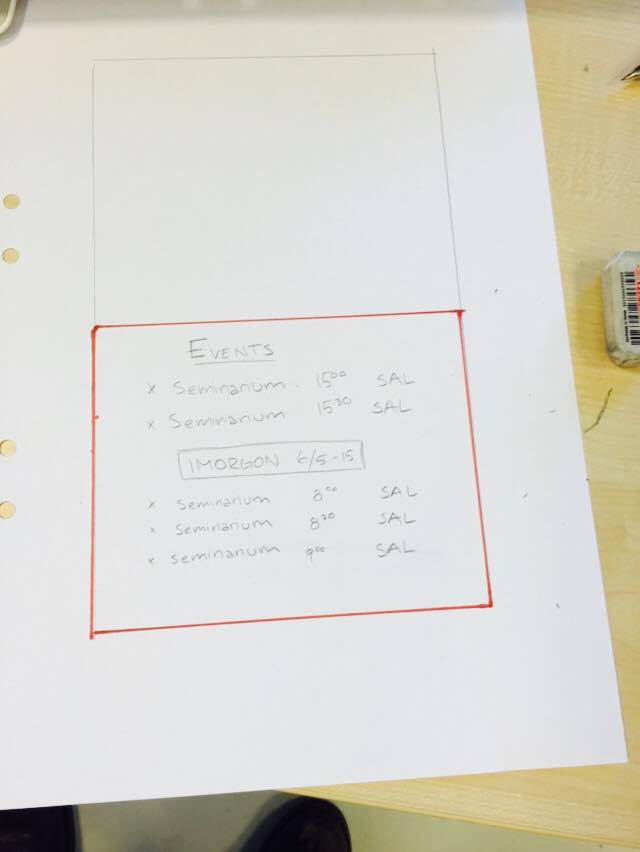 EVENTS
x Seminarium. 15⁰⁰ SAL
x Seminarium 15³⁰ SAL
IMORGON 6/5-15
x Seminarium 8⁰⁰ SAL
x Seminarium 8³⁰ SAL
x Seminarium 9⁰⁰ SAL